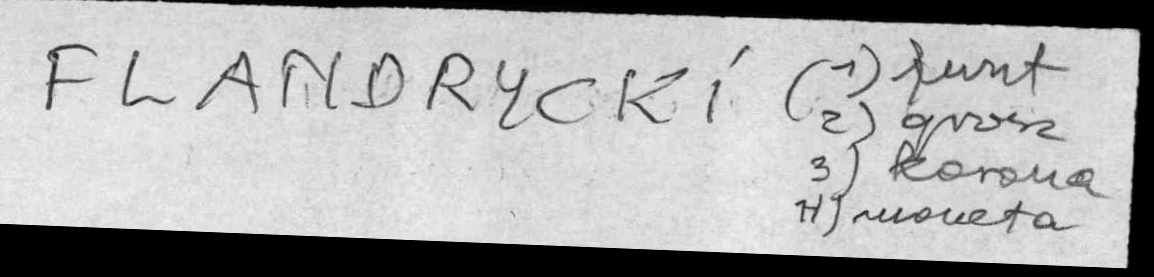 FLANDRYCKI (1) funt
2) grosz
3) korona
4) moneta